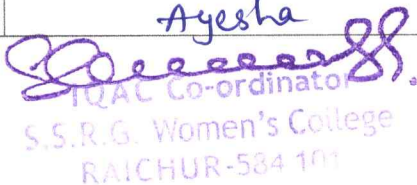 Ayesha
IQAC Co-ordinator
S.S.R.G. Women's College
RAICHUR-584 101